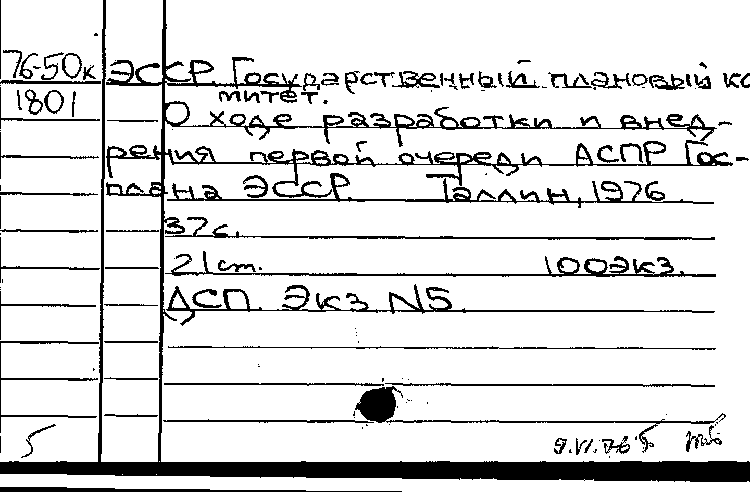 76-50к ЭССР. Государственный плановый ко
митет.
1801 О ходе разработки и внед-
рения первой очереди АСПР Гос-
плана ЭССР. Таллин, 1976.
37с.
21см. 100экз.
ДСП. Экз. N5.
5 9.VI.76